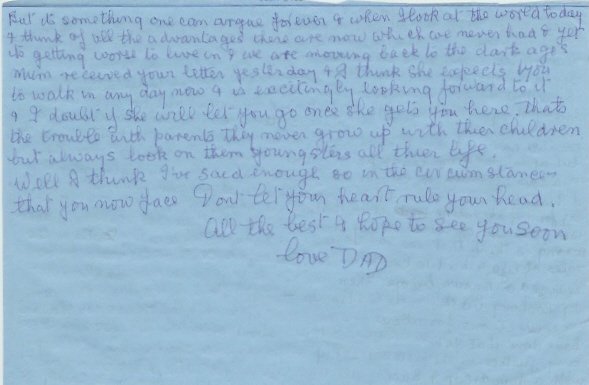 But its something one can argue forever & when I look at the world today
& think of all the advantages there are now which we never had & yet
its getting worse to live in & we are moving back to the dark ages
Mum received your letter yesterday & I think she expects you
to walk in any day now & is excitingly looking forward to it
& I doubt if she will let you go once she gets you here. thats
the trouble with parents they never grow up with thier children
but always look on them youngsters all thier life.
Well I think I've said enough so in the circumstances
that you now face Dont let your heart rule your head.
All the best & hope to see you soon
love DAD